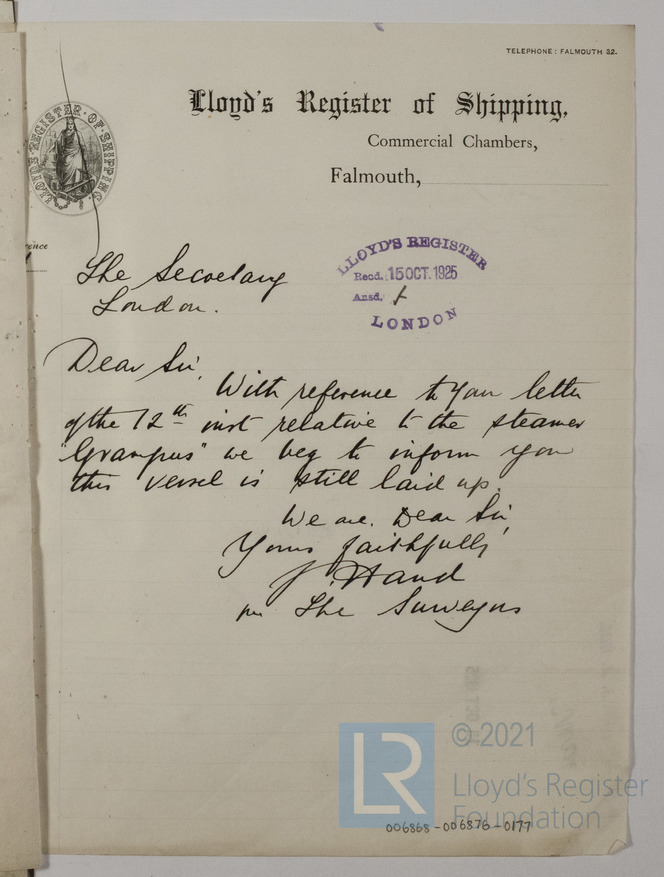 TELEPHONE: FALMOUTH 32.
Lloyd's Register of Shipping,
Commercial Chambers,
Falmouth,
LLOYD'S REGISTER OF SHIPPING
LLOYD'S REGISTER
Recd. 15 OCT. 1925
Ansd.
LONDON
The Secretary
London.
Dear Sir,
With reference to your letter
of the 12th inst relative to the steamer
"Grampus" we beg to inform you
this vessel is still laid up.
We are, Dear Sir,
Yours faithfully
J. Hand
per The Surveyors
LR
© 2021
Lloyd's Register
Foundation
006868-006876-0177